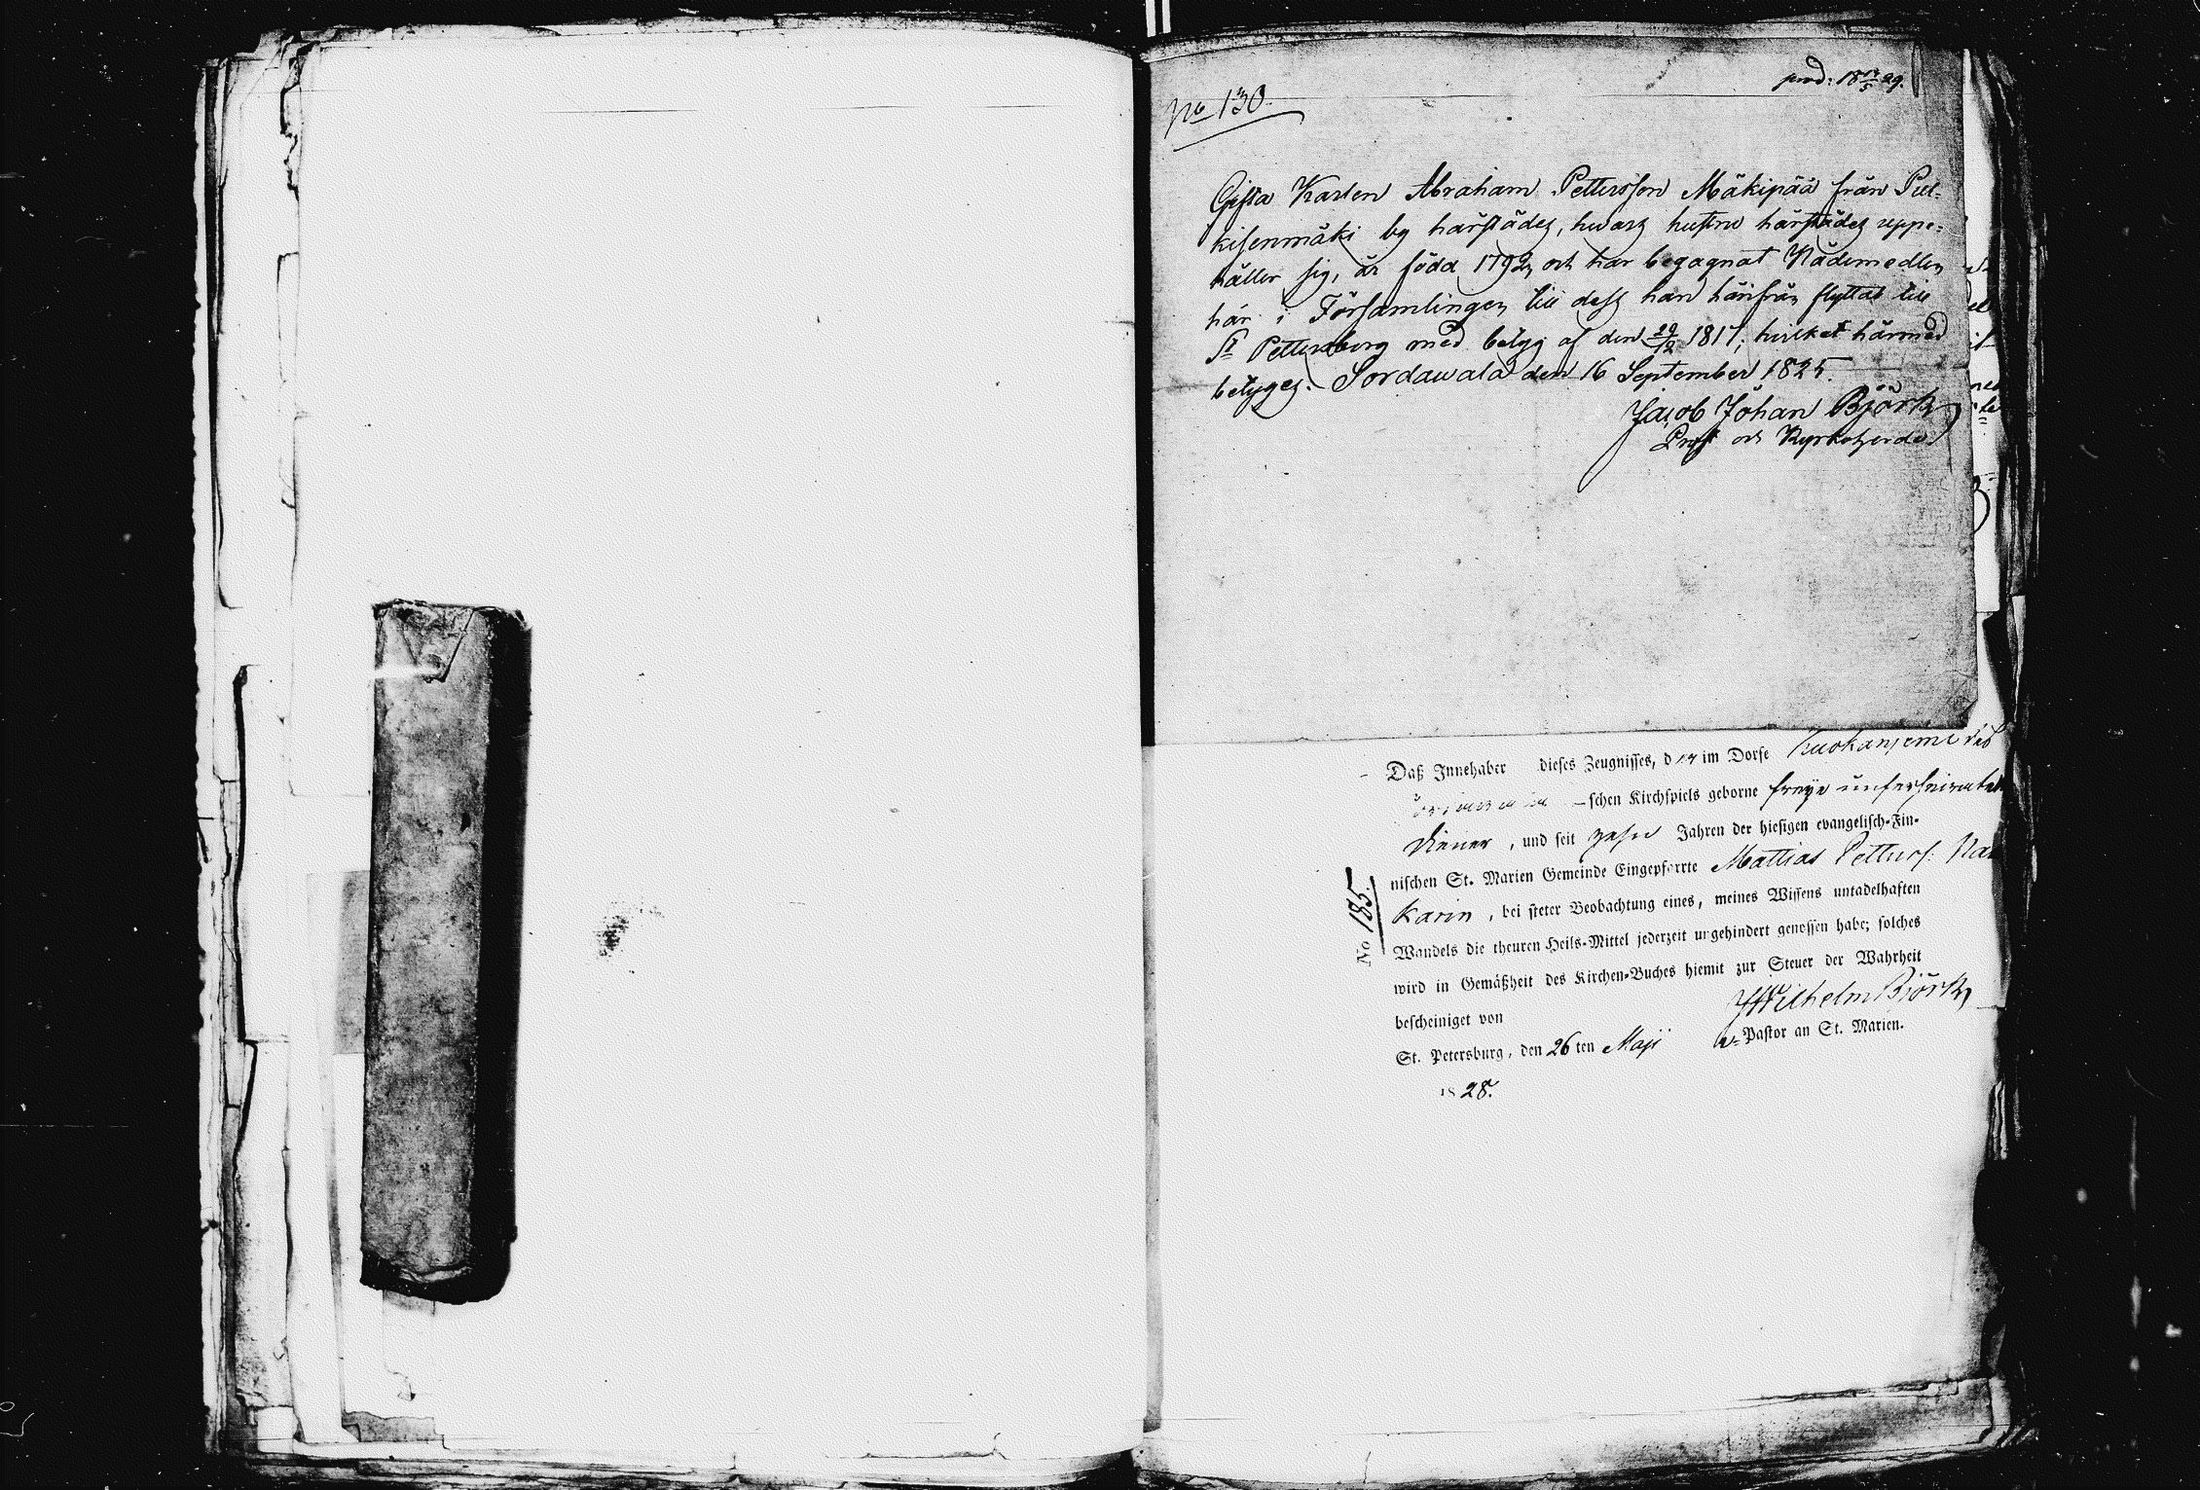 No 130.
prod: 18 29.
Gifta Karlen Abraham Pettersson Mäkipää från Put-
kisenmäki by härstädes, hwars hustru härstädes uppe-
håller sig, är född 1792, och har begagnat Nådemedlen
här i Församlingen till dess han härifrån flyttat till
St Pettersborg med betyg af den 29/12 1817; hvilket härmed
betyges. Sordawala den 16 September 1825.
Jacob Johan Björk
Prost och Kyrkoherde.
Daß Innehaber dieses Zeugnisses, der im Dorfe Kuokaniemi des
schen Kirchspiels geborne freye unverheiratete
Diener, und seit zehn Jahren der hiesigen evangelisch-Fin-
nischen St. Marien Gemeinde Eingepfarrte Mattias Petters: Na
Karin, bei steter Beobachtung eines, meines Wissens untadelhaften
Wandels die theuren Heils-Mittel jederzeit ungehindert genossen habe; solches
wird in Gemäßheit des Kirchen-Buches hiemit zur Steuer der Wahrheit
bescheiniget von
Wilhelm Björk,
St. Petersburg, den 26 ten Maji
v. Pastor an St. Marien.
1828.
No 185.